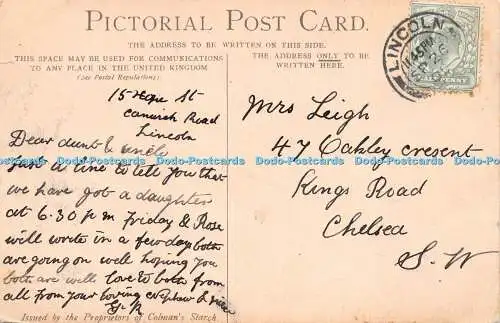 PICTORIAL POST CARD.
THE ADDRESS TO BE WRITTEN ON THIS SIDE.
THIS SPACE MAY BE USED FOR COMMUNICATIONS
TO ANY PLACE IN THE UNITED KINGDOM
(See Postal Regulations).
THE ADDRESS ONLY TO BE
WRITTEN HERE.
LINCOLN
PENNY
15 Hope St
Canwick Road
Lincoln
Dear Aunt & Uncle
Just a line to tell you that
we have got a daughter
at 6.30 p m Friday & Rose
will write in a few days both
are going on well hoping you
both are well love to both from
all from your loving
Mrs Leigh
47 Oakley cresent
Kings Road
Chelsea
S.W
Issued by the Proprietors of Colman's Starch
Dodo-Postcards Dodo-Postcards Dodo-Postcards Dodo-Postcards